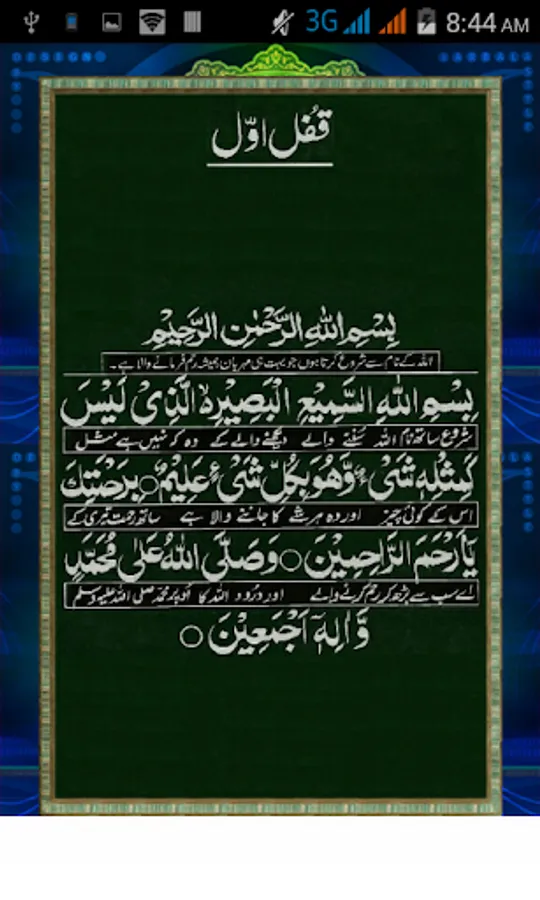 3G 8:44 AM
DESIGNO
KARBALA
قُفل اوّل
بِسْمِ اللهِ الرَّحْمٰنِ الرَّحِيْمِ
اللہ کے نام سے شروع کرتا ہوں جو بہت ہی مہربان ہمیشہ رحم فرمانے والا ہے۔
بِسْمِ اللهِ السَّمِيْعِ الْبَصِيْرِ الَّذِىْ لَيْسَ
شروع ساتھ نام اللہ سُننے والے دیکھنے والے کے وہ کہ نہیں ہے مثل
كَمِثْلِهٖ شَىْءٌ وَّهُوَ بِكُلِّ شَىْءٍ عَلِيْمٌ ○ بِرَحْمَتِكَ
اس کے کوئی چیز اور وہ ہر شے کا جاننے والا ہے ساتھ رحمت تیری کے
يَا اَرْحَمَ الرَّاحِمِيْنَ ○ وَصَلَّى اللهُ عَلٰى مُحَمَّدٍ
اے سب سے بڑھ کر رحم کرنے والے اور درُود اللہ کا اُوپر محمد صلی اللہ علیہ وسلم
وَّاٰلِهٖٓ اَجْمَعِيْنَ ○